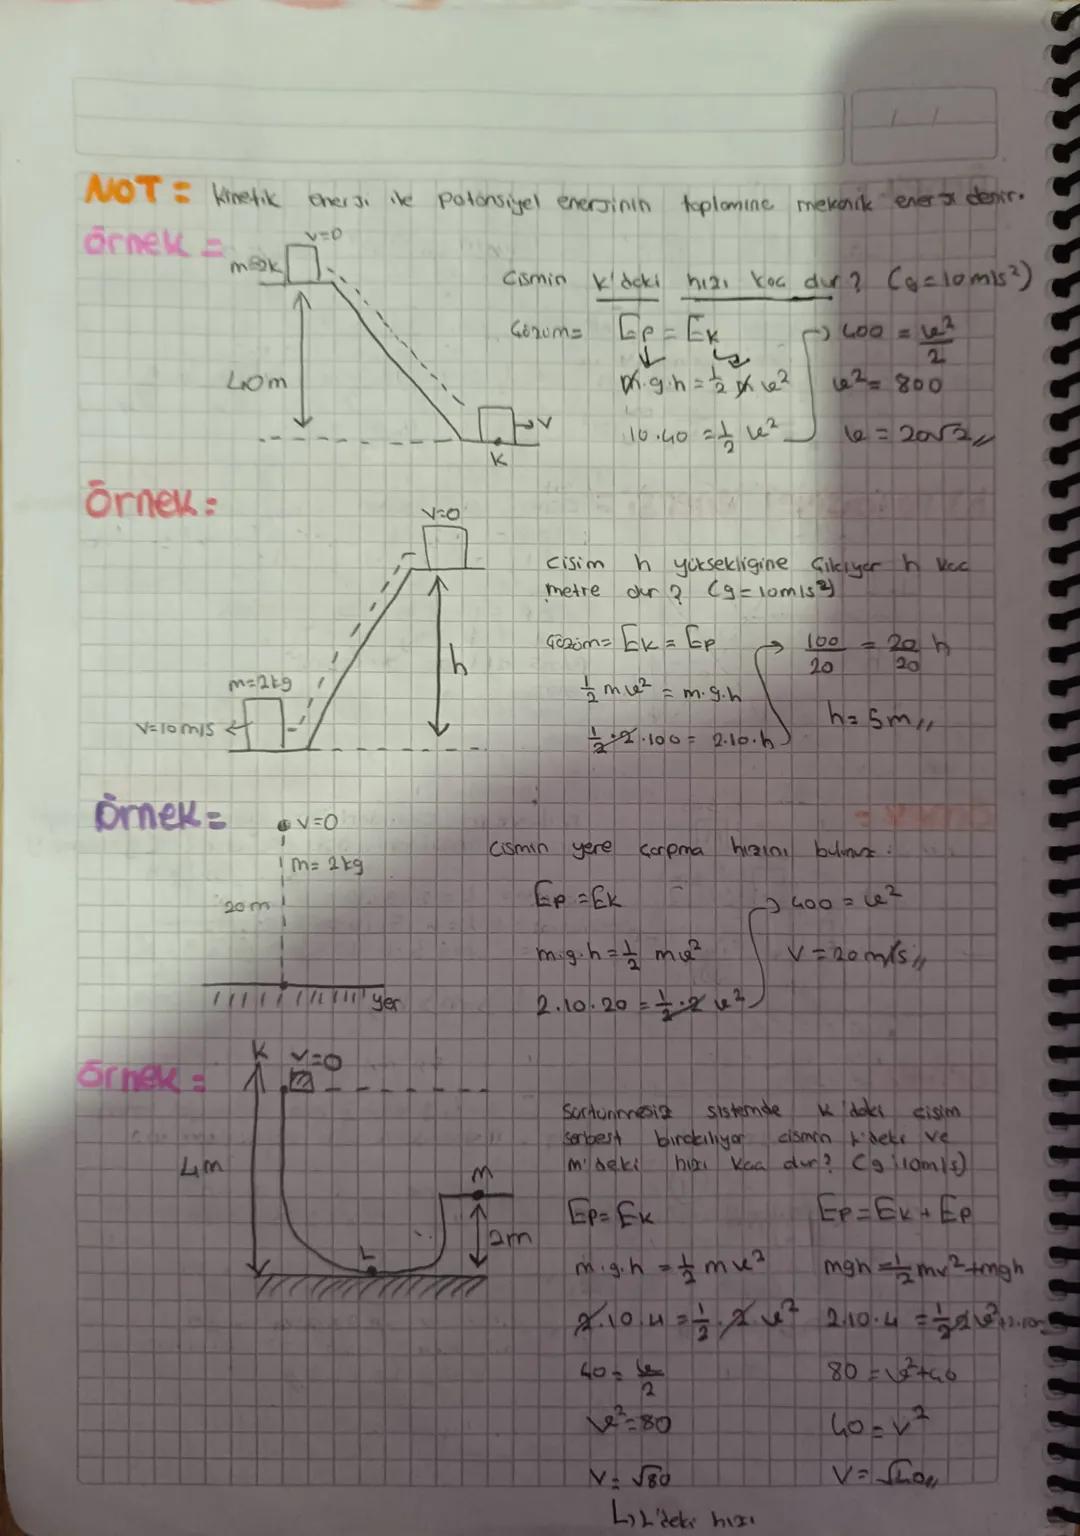 NOT = Kinetik enerji ile potansiyel enerjinin toplamına mekanik enerji denir.
Örnek =
V=0
m=2k
40m
V
K
Cismin K'deki hızı kaç dur? (g=10m/s²)
Çözüm= Ep = Ek
m.g.h = 1/2 m v²
10.40 = 1/2 v²
400 = v²/2
v² = 800
v = 20√2//
Örnek =
V=0
h
m=2kg
V=10m/s
Cisim h yüksekligine Çıkıyor h kaç
metre dur? (g=10m/s²)
Çözüm= Ek = Ep
1/2 m v² = m.g.h
1/2 . 2 . 100 = 2.10.h
100/20 = 20/20 h
h = 5m//
Örnek =
V=0
m= 2kg
20m
yer
Cismin yere çarpma hızını bulunuz.
Ep = Ek
m.g.h = 1/2 m v²
2.10.20 = 1/2 . 2 v²
400 = v²
V = 20 m/s//
Örnek =
K V=0
4m
M
2m
L
Sürtünmesiz sistemde K'daki cisim
serbest bırakılıyor cismin L'deki ve
m'deki hızı kaç dur? (g:10m/s)
Ep = Ek
m.g.h = 1/2 m v²
2.10.4 = 1/2 . 2 v²
40 = v/2
v² = 80
V = √80
L, L'deki hızı
Ep = Ek + Ep
mgh = 1/2 mv² + mgh
2.10.4 = 1/2 2 v² + 2.10
80 = v² + 40
40 = v²
V = √40//